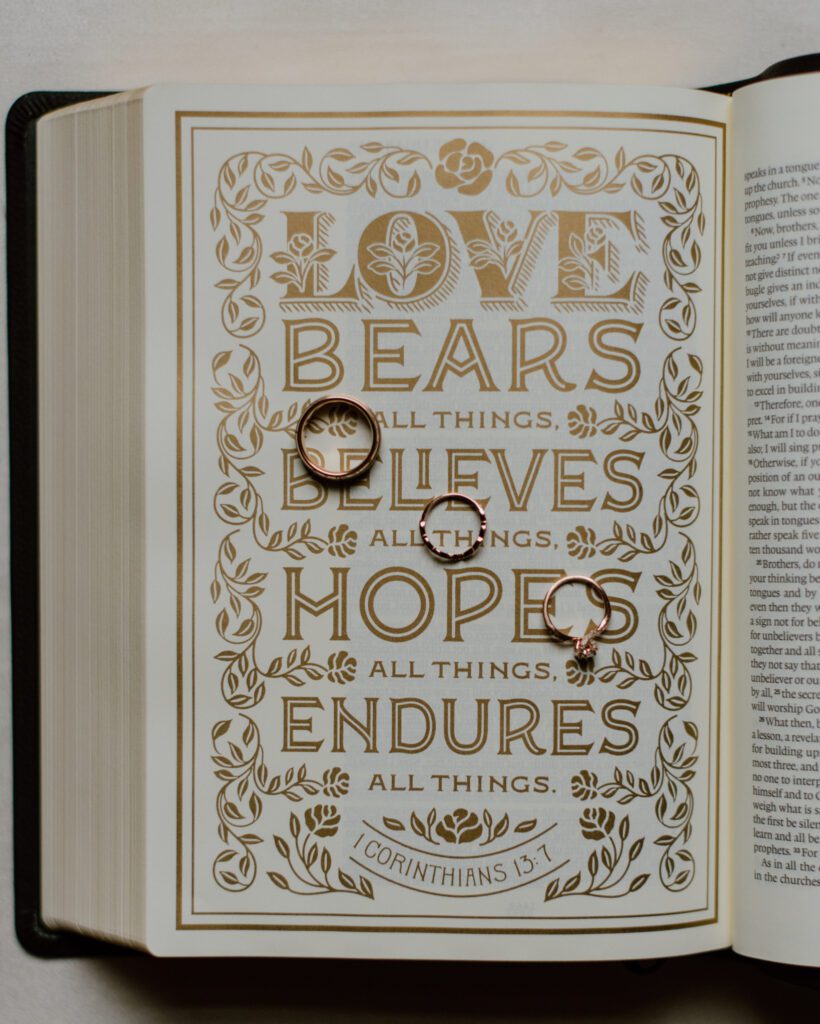 LOVE
BEARS
ALL THINGS,
BELIEVES
ALL THINGS,
HOPES
ALL THINGS,
ENDURES
ALL THINGS.
1 CORINTHIANS 13:7
speaks in a tongue
up the church.
prophesy. The one
tongues, unless so
Now, brothers,
fit you unless I bri
teaching? If even
not give distinct
bugle gives an ind
yourselves, if with
how will anyone
There are doubt
is without meanin
I will be a foreigne
with yourselves,
to excel in buildin
Therefore, one
pret. For if I pray
What am I to do
also; I will sing
Otherwise, if
position of an
not know what
enough, but the
speak in tongues
rather speak five
ten thousand wo
Brothers, do
your thinking be
tongues and by
even then they
a sign not for
for unbelievers
together and all
they not say that
unbeliever or
by all, the secre
will worship
What then,
a lesson, a revela
for building up
most three, and
no one to interp
himself and to
weigh what is
the first be silen
learn and all be
prophets. For
As in all the
in the churches